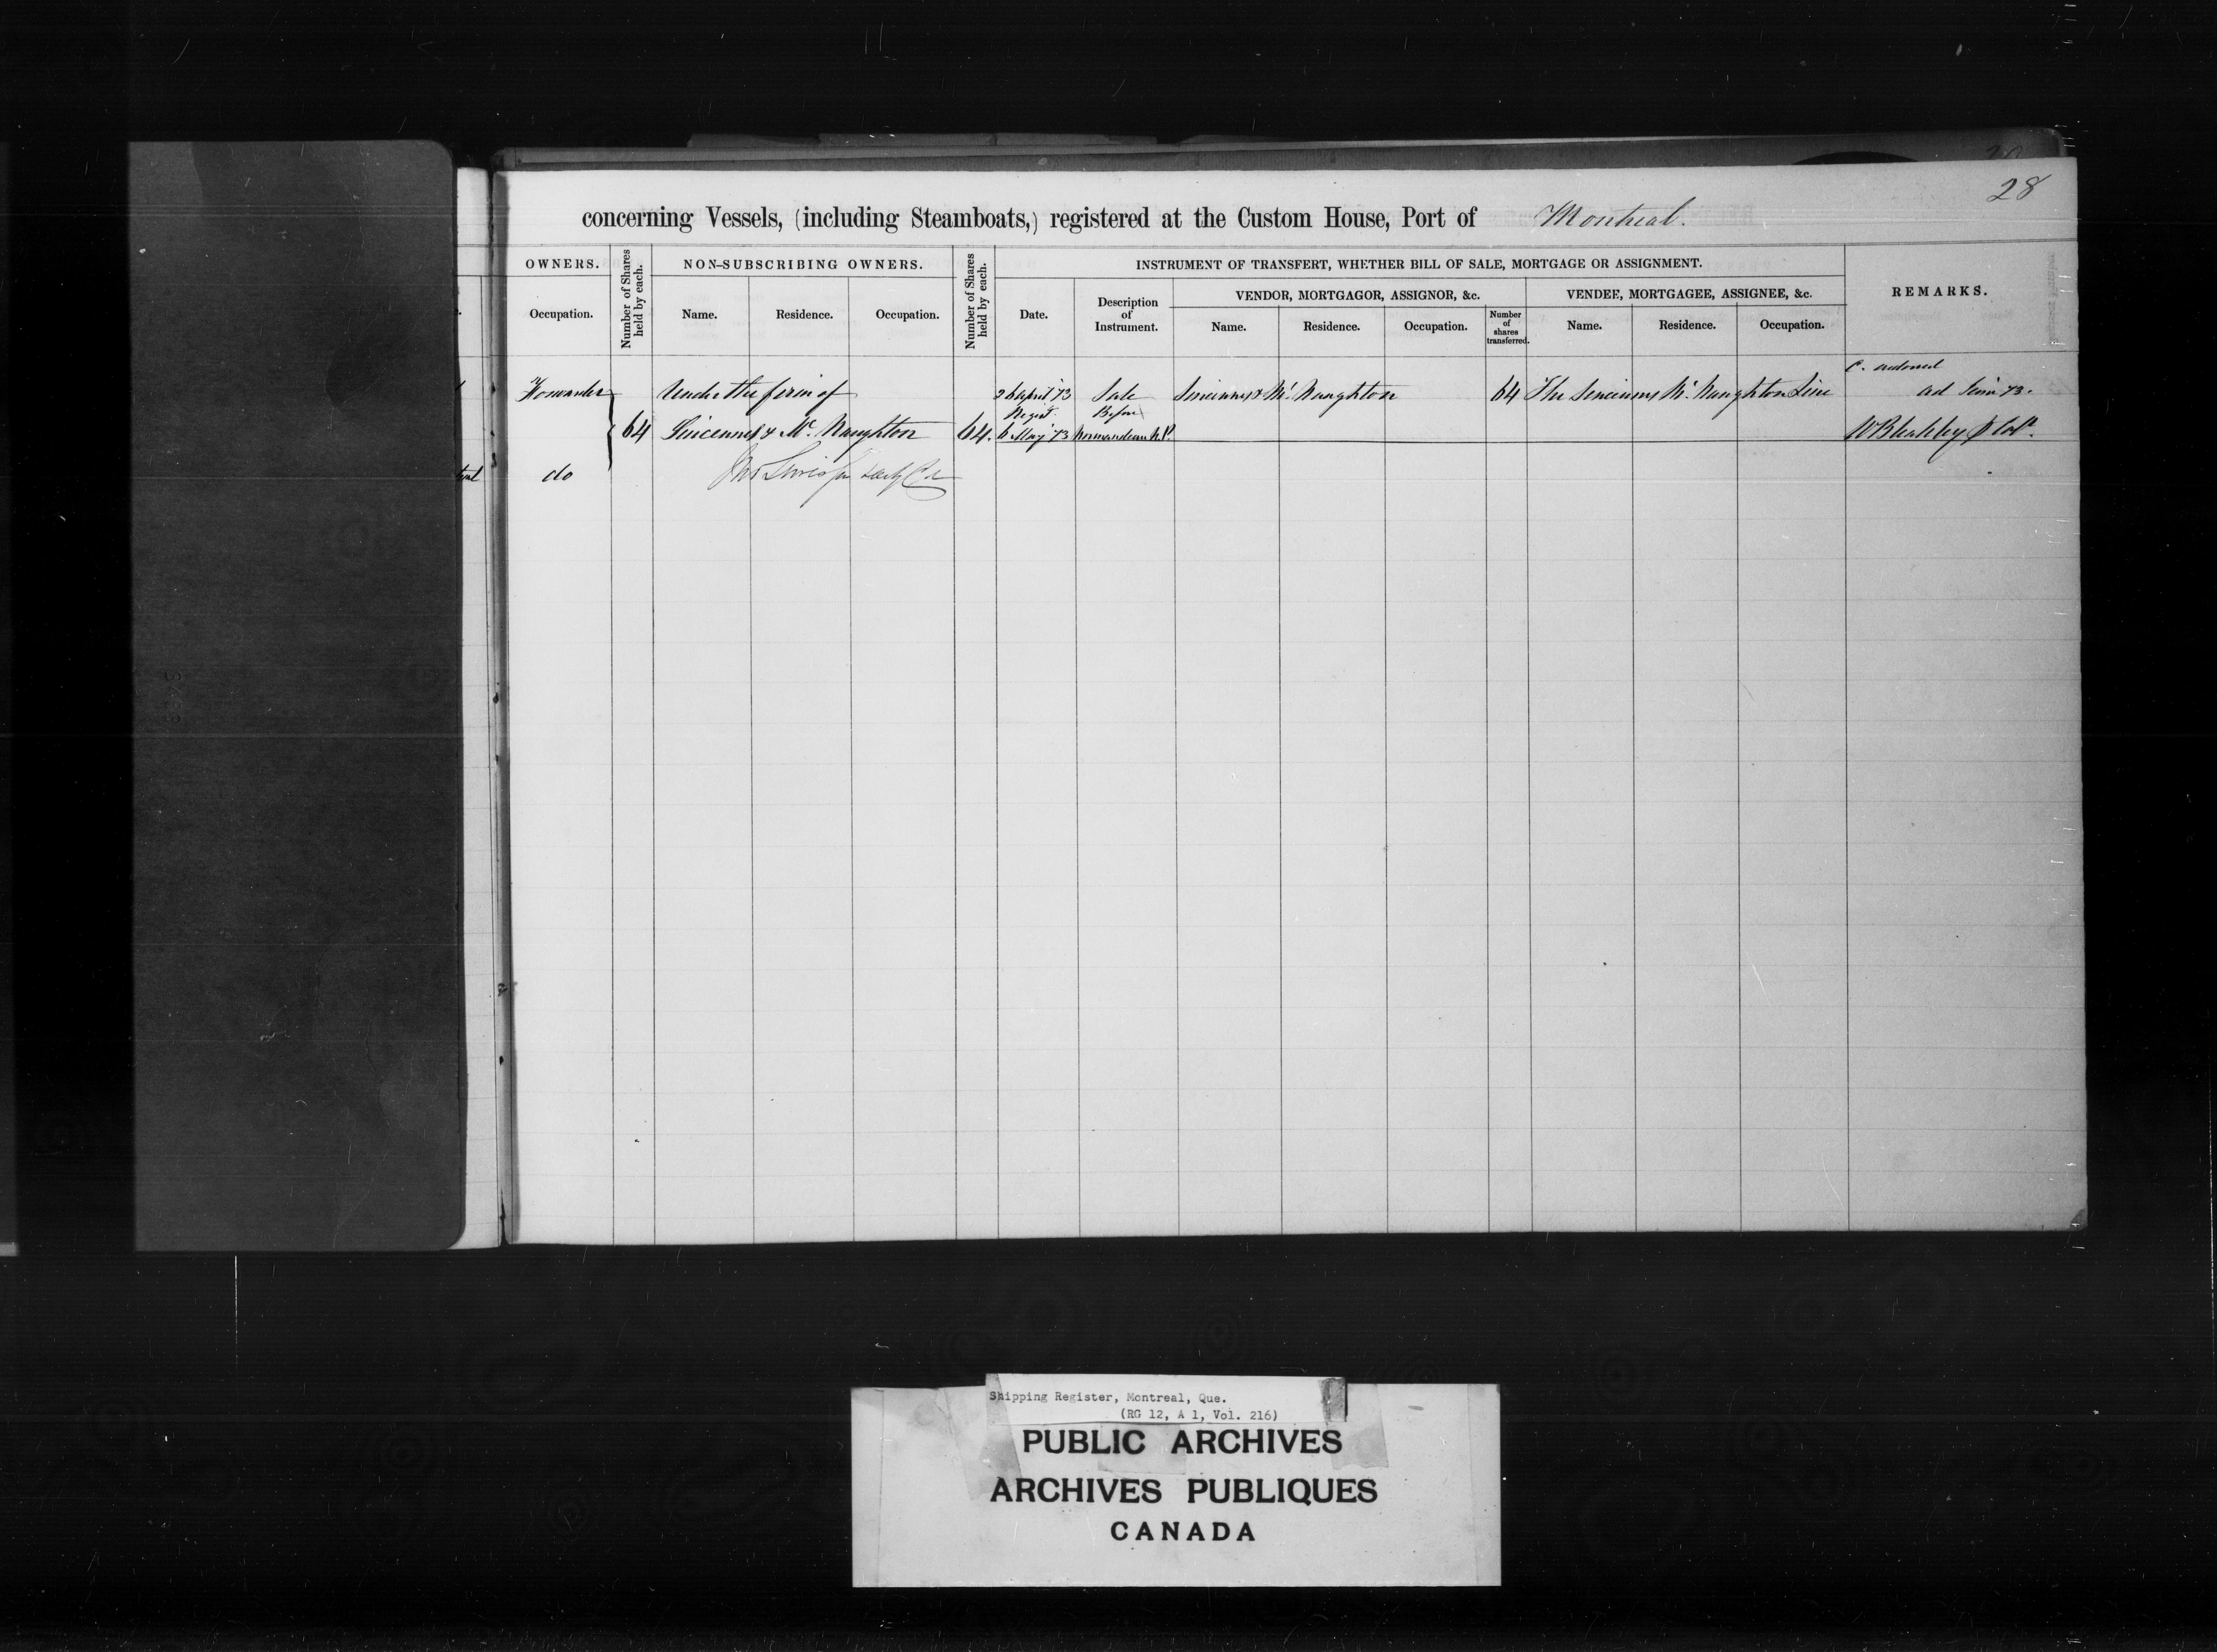 28
concerning Vessels, (including Steamboats,) registered at the Custom House, Port of Montreal.
OWNERS.
Number of Shares held by each.
NON-SUBSCRIBING OWNERS.
Number of Shares held by each.
INSTRUMENT OF TRANSFERT, WHETHER BILL OF SALE, MORTGAGE OR ASSIGNMENT.
REMARKS.
VENDOR, MORTGAGOR, ASSIGNOR, &c.
VENDEE, MORTGAGEE, ASSIGNEE, &c.
Occupation.
Name. Residence. Occupation.
Date.
Description of Instrument.
Name. Residence. Occupation.
Number of shares transferred.
Name. Residence. Occupation.
Forwarder Under the firm of 26 April '73 Sale Sincennes & Mc Naughton 64 The Sincennes Mc Naughton Line
Before
64 Sincennes & Mc Naughton 64. 6 May '73 Normandeau N.P.
do
Shipping Register, Montreal, Que.
(RG 12, A 1, Vol. 216)
PUBLIC ARCHIVES
ARCHIVES PUBLIQUES
CANADA